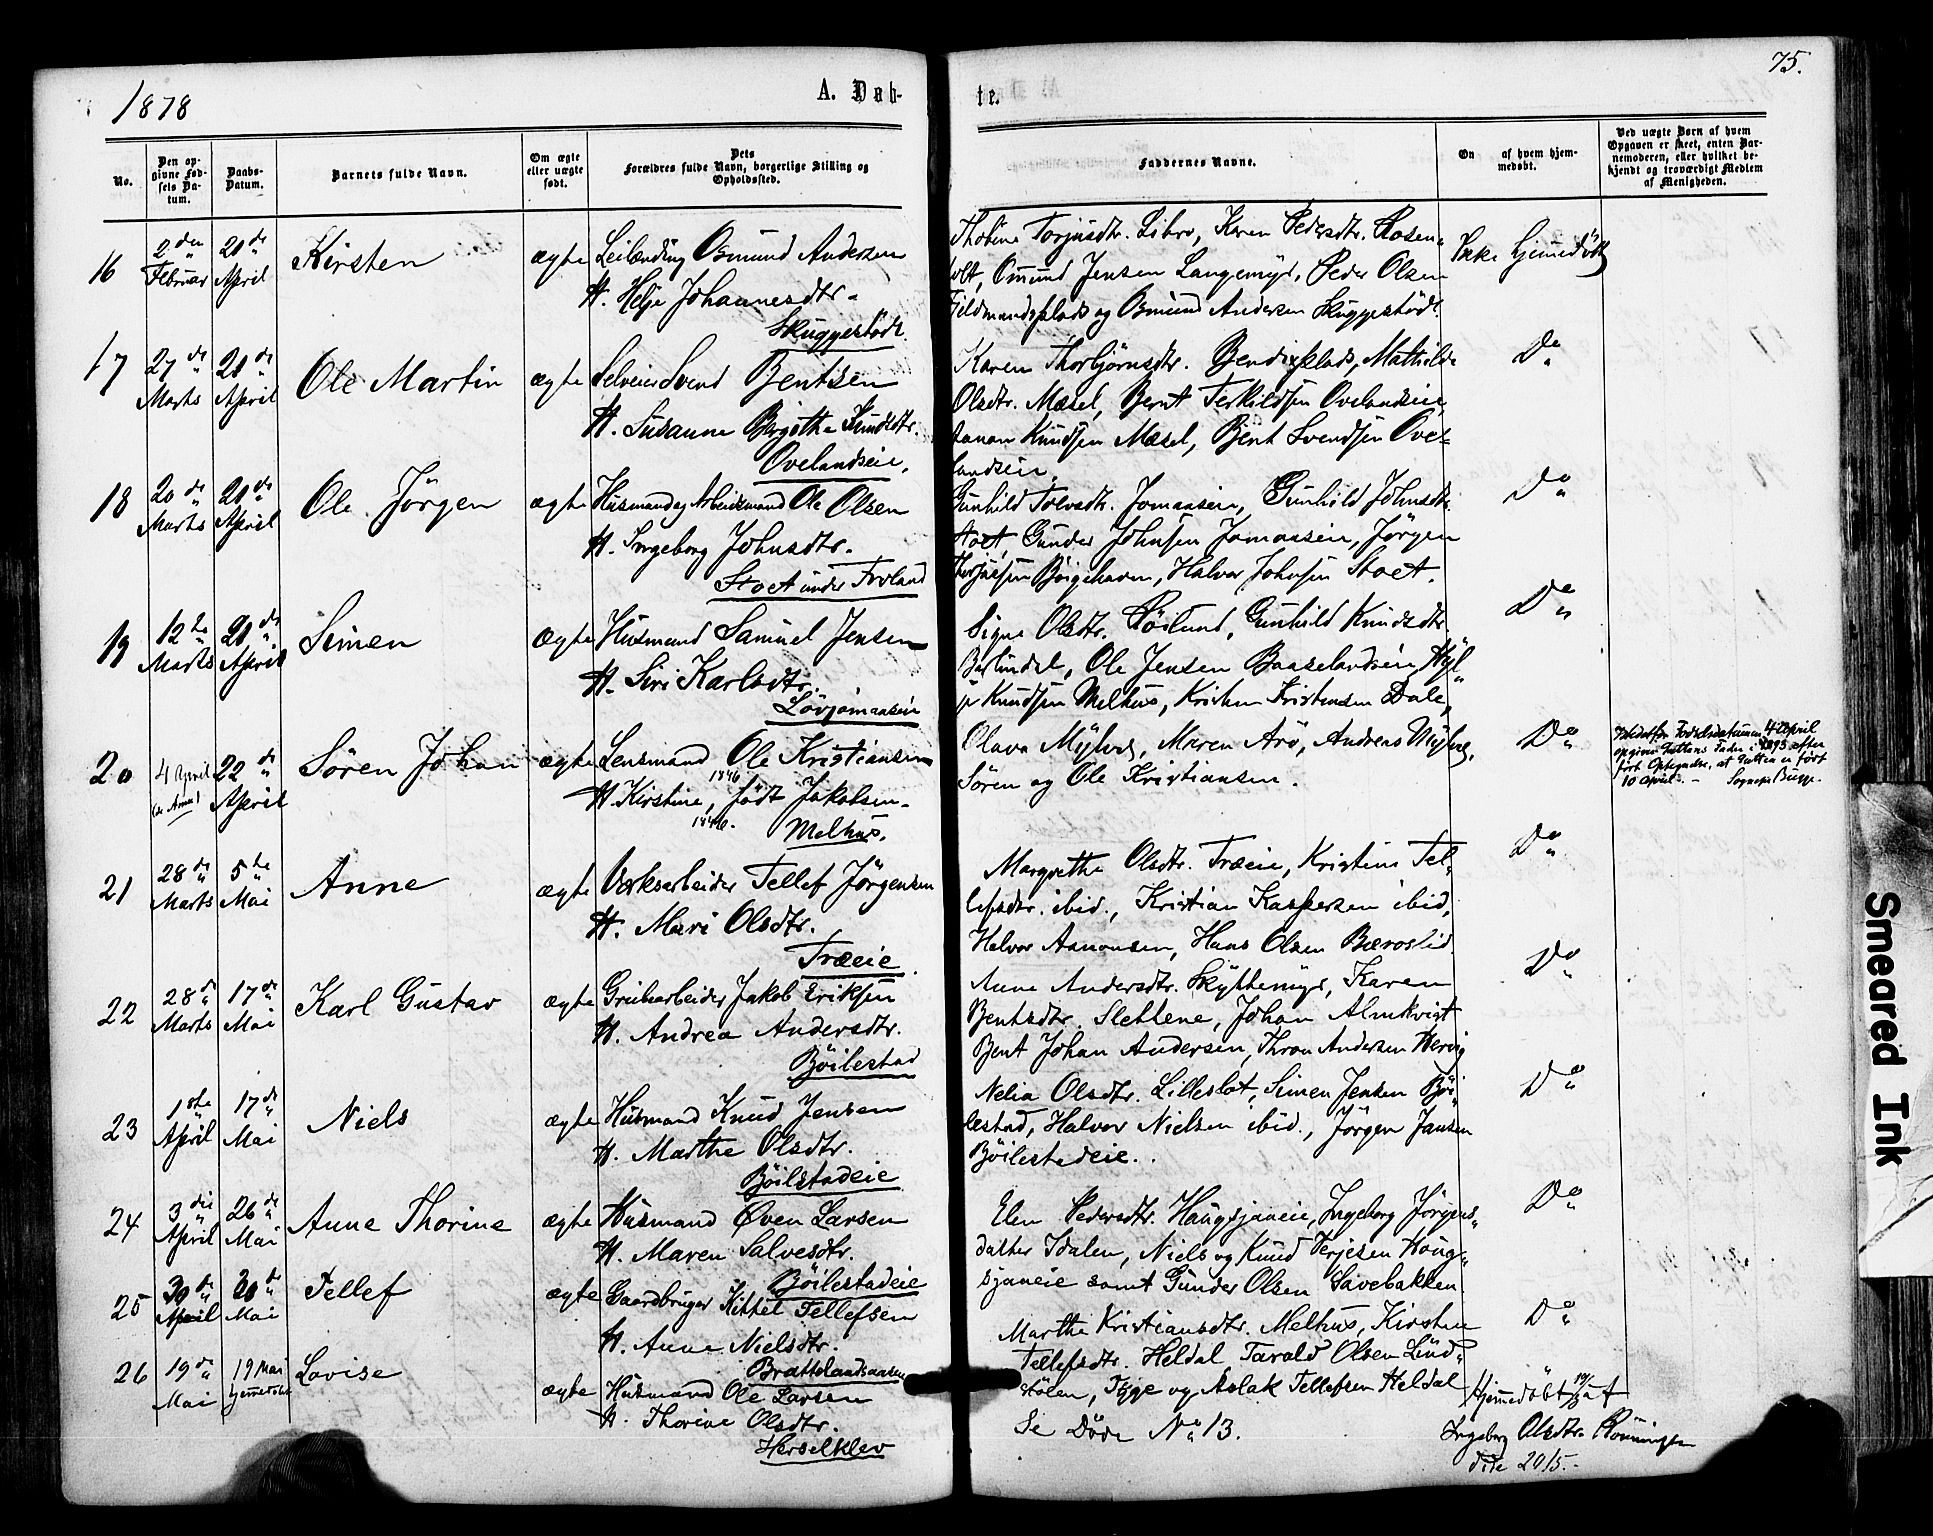 1878
A. Døb-
te.
75.
No.
Den op-
givne Fød-
sels Da-
tum.
Daabs-
Datum.
Barnets fulde Navn.
Om ægte
eller uægte
født.
Dets
Forældres fulde Navn, borgerlige Stilling og
Opholdssted.
Faddernes Navne.
Om af hvem hjem-
medøbt.
Ved uægte Børn af hvem
Opgaven er skeet, enten Bar-
nemoderen, eller hvilket be-
kjendt og troværdigt Medlem
af Menigheden.
16
2den
Februar
21de
April
Kirsten
ægte
Leilænding Osmund Andersen
H. Helje Johannesdtr.
Skuggestødt
Torjusdtr. Libro, Karen Pedersdtr. Rosen-
holt, Omund Jensen Langemyr, Peder Olsen
og Osmund Andersen Skuggestødt.
Ikke hjemmedøbt
17
27de
Marts
21de
April
Ole Martin
ægte
Selveier Svend Bentsen
H. Susanne Birgithe Knudsdtr.
Ovelandseie.
Karen Thorbjørnsdtr. Bendixplads, Mathilde
Olsdtr. Mæsel, Bernt Terkildsen Ovelandseie
Knudsen Mæsel, Bent Svendsen Ove-
landseie
Do
18
20de
Marts
21de
April
Ole Jørgen
ægte
Husmand og Arbeidsmand Ole Olsen
H. Ingeborg Johnsdtr.
Stoet under Froland
Gunhild Tolvsdtr. Jomaaseie, Gunhild Johnsdtr.
Stoet, Gunder Johnsen Jomaaseie, Jørgen
Bøigehaven, Halvor Johnsen Stoet.
Do
19
12te
Marts
21de
April
Simen
Ægte
Husmand Samuel Jensen
H. Siri Karlsdtr.
Løvjomaaseie
Signe Olsdtr. Røilund, Gunhild Knudsdtr.
Ole Jensen Baaselandseie, Hyl-
Knudsen Melhus, Kristen Kristensen Dale,
Do
20
4 April
22de
April
Søren Johan
ægte
Lensmand Ole Kristiansen
1846
H. Kirstine, født Jakobsen.
Melhus.
Olava Myhre, Maren Arø, Andreas Myhre,
Søren og Ole Kristiansen.
Do
Fødselsdatumen 4 April
i 1893 efter
at er født
10 April. - Sognepr. Bugge.
21
28de
Marts
5te
Mai
Anne
ægte
Værksarbeider Tellef Jørgensen
H. Mari Olsdtr.
Træeie
Margrethe Olsdtr. Træeie, Kristine Tel-
lefsdtr. ibid., Kristian Kaspersen ibid,
Halvor Aanonsen, Hans Olsen Bæroslid.
Do
22
28de
Marts
17de
Mai
Karl Gustav
ægte
Grubearbeider Jakob Eriksen
H. Andrea Andersdtr.
Bøilestad
Anne Andersdtr. Skyttemyr, Karen
Bentsdtr. Slettene, Johan Almkvist
Bent Johan Andersen, Thron Andersen
Do
23
1ste
April
17de
Mai
Niels
ægte
Husmand Knud Jensen
H. Marthe Olsdtr.
Bøilestadeie
Nelia Olsdtr. Lilleslot, Simen Jensen Bøi-
lestad, Halvor Nielsen ibid., Jørgen Jansen
Bøilestadeie.
Do
24
3die
April
26de
Mai
Anne Thorine
ægte
Husmand Øven Larsen
H. Maren Salvesdtr.
Bøilestadeie
Elen Pedersdtr. Haugsjaaeie, Ingeborg Jørgens-
datter Idalen, Niels og Knud Terjesen Haug-
sjaaeie samt Gunder Olsen Savebakken.
Do
25
30de
April
30de
Mai
Tellef
ægte
Gaardbruger Kittel Tellefsen
H. Anne Nielsdtr.
Brattelandsaasen
Marthe Kristiansdtr. Melhus, Kirsten
Tellefsdtr. Heldal, Tarald Olsen Lind-
stølen, Tyge og Aslak Tellefsen Heldal
Do
26
19de
Mai
19 Mai
hjemmedøbt
Lovise
ægte
Husmand Ole Larsen
H. Thorine Olsdtr.
Herselklev
Se Døde No 13.
Hjemmedøbt 19/5 af
Ingeborg Olsdtr. Rønningen
død 20/5.
Smeared Ink